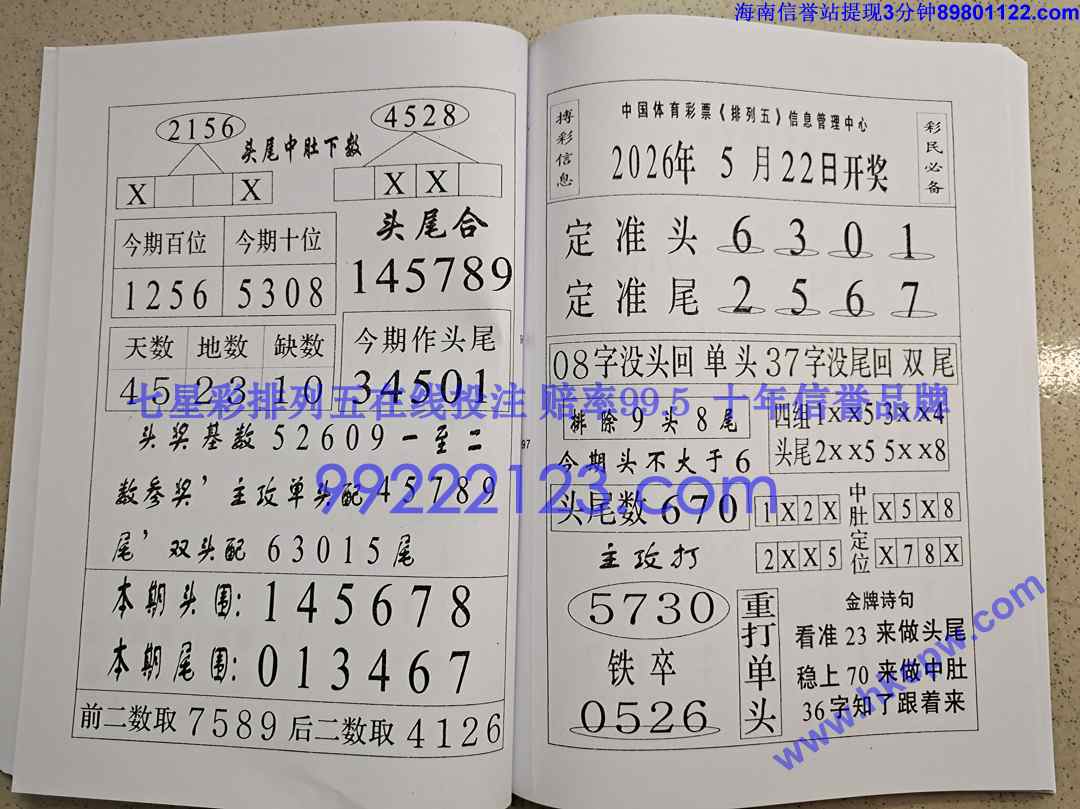 海南信誉站提现3分钟89801122.com
2156
4528
头尾中肚下数
X X
X X
头尾合
145789
今期百位 今期十位
1256 5308
天数 地数 缺数
45 23 10
今期作头尾
34501
七星彩排列五在线投注 赔率995 十年信誉品牌
头奖基数52609一至二
数参奖，主攻单头配45789
尾，双头配 63015尾
99222123.com
本期头围:145678
本期尾围:013467
前二数取7589后二数取4126
97
搏彩信息
中国体育彩票《排列五》信息管理中心
2026年 5月22日开奖
彩民必备
定准头 6 3 0 1
定准尾 2 5 6 7
08字没头回单头37字没尾回双尾
排除9头8尾
今期头不大于6
四组1XX5 3XX4
头尾2XX5 5XX8
头尾数670
1X2X
中肚定位
X5X8
2XX5
X78X
主攻打
5730
铁卒
0526
重打单头
金牌诗句
看准23来做头尾
稳上70来做中肚
36字知了跟着来
www.hkcpw.com